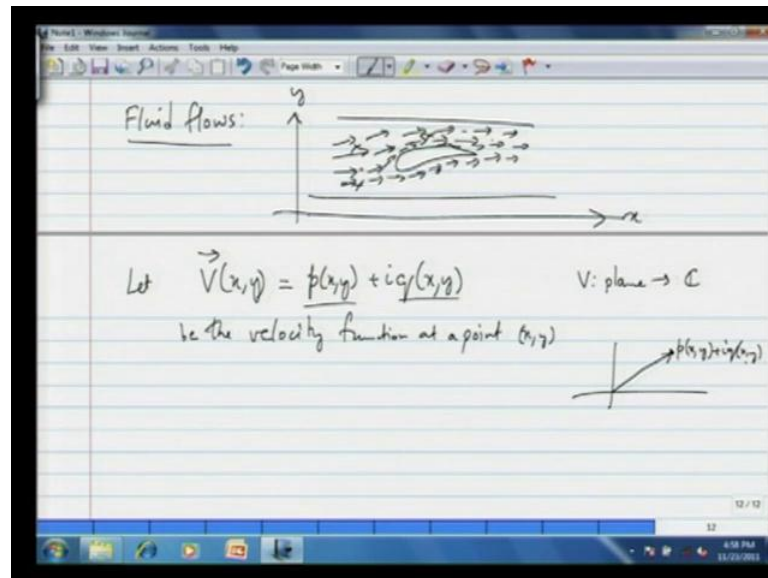 Note1 - Windows Journal
File Edit View Insert Actions Tools Help
Page Width
Fluid flows:
y
x
Let V(x,y) = p(x,y) + iq(x,y) V: plane → ℂ
be the velocity function at a point (x,y)
p(x,y)+iq(x,y)
12 / 12
12
4:58 PM
11/23/2011